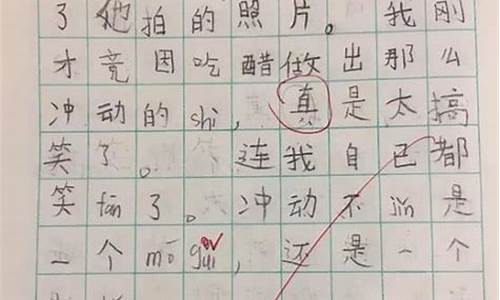 了他拍的照片。我刚
才竟因吃醋做出那么
冲动的shi，真是太搞
笑了。连我自己都
笑fān了。冲动不jǐn是
一个mó guǐ，还是一个